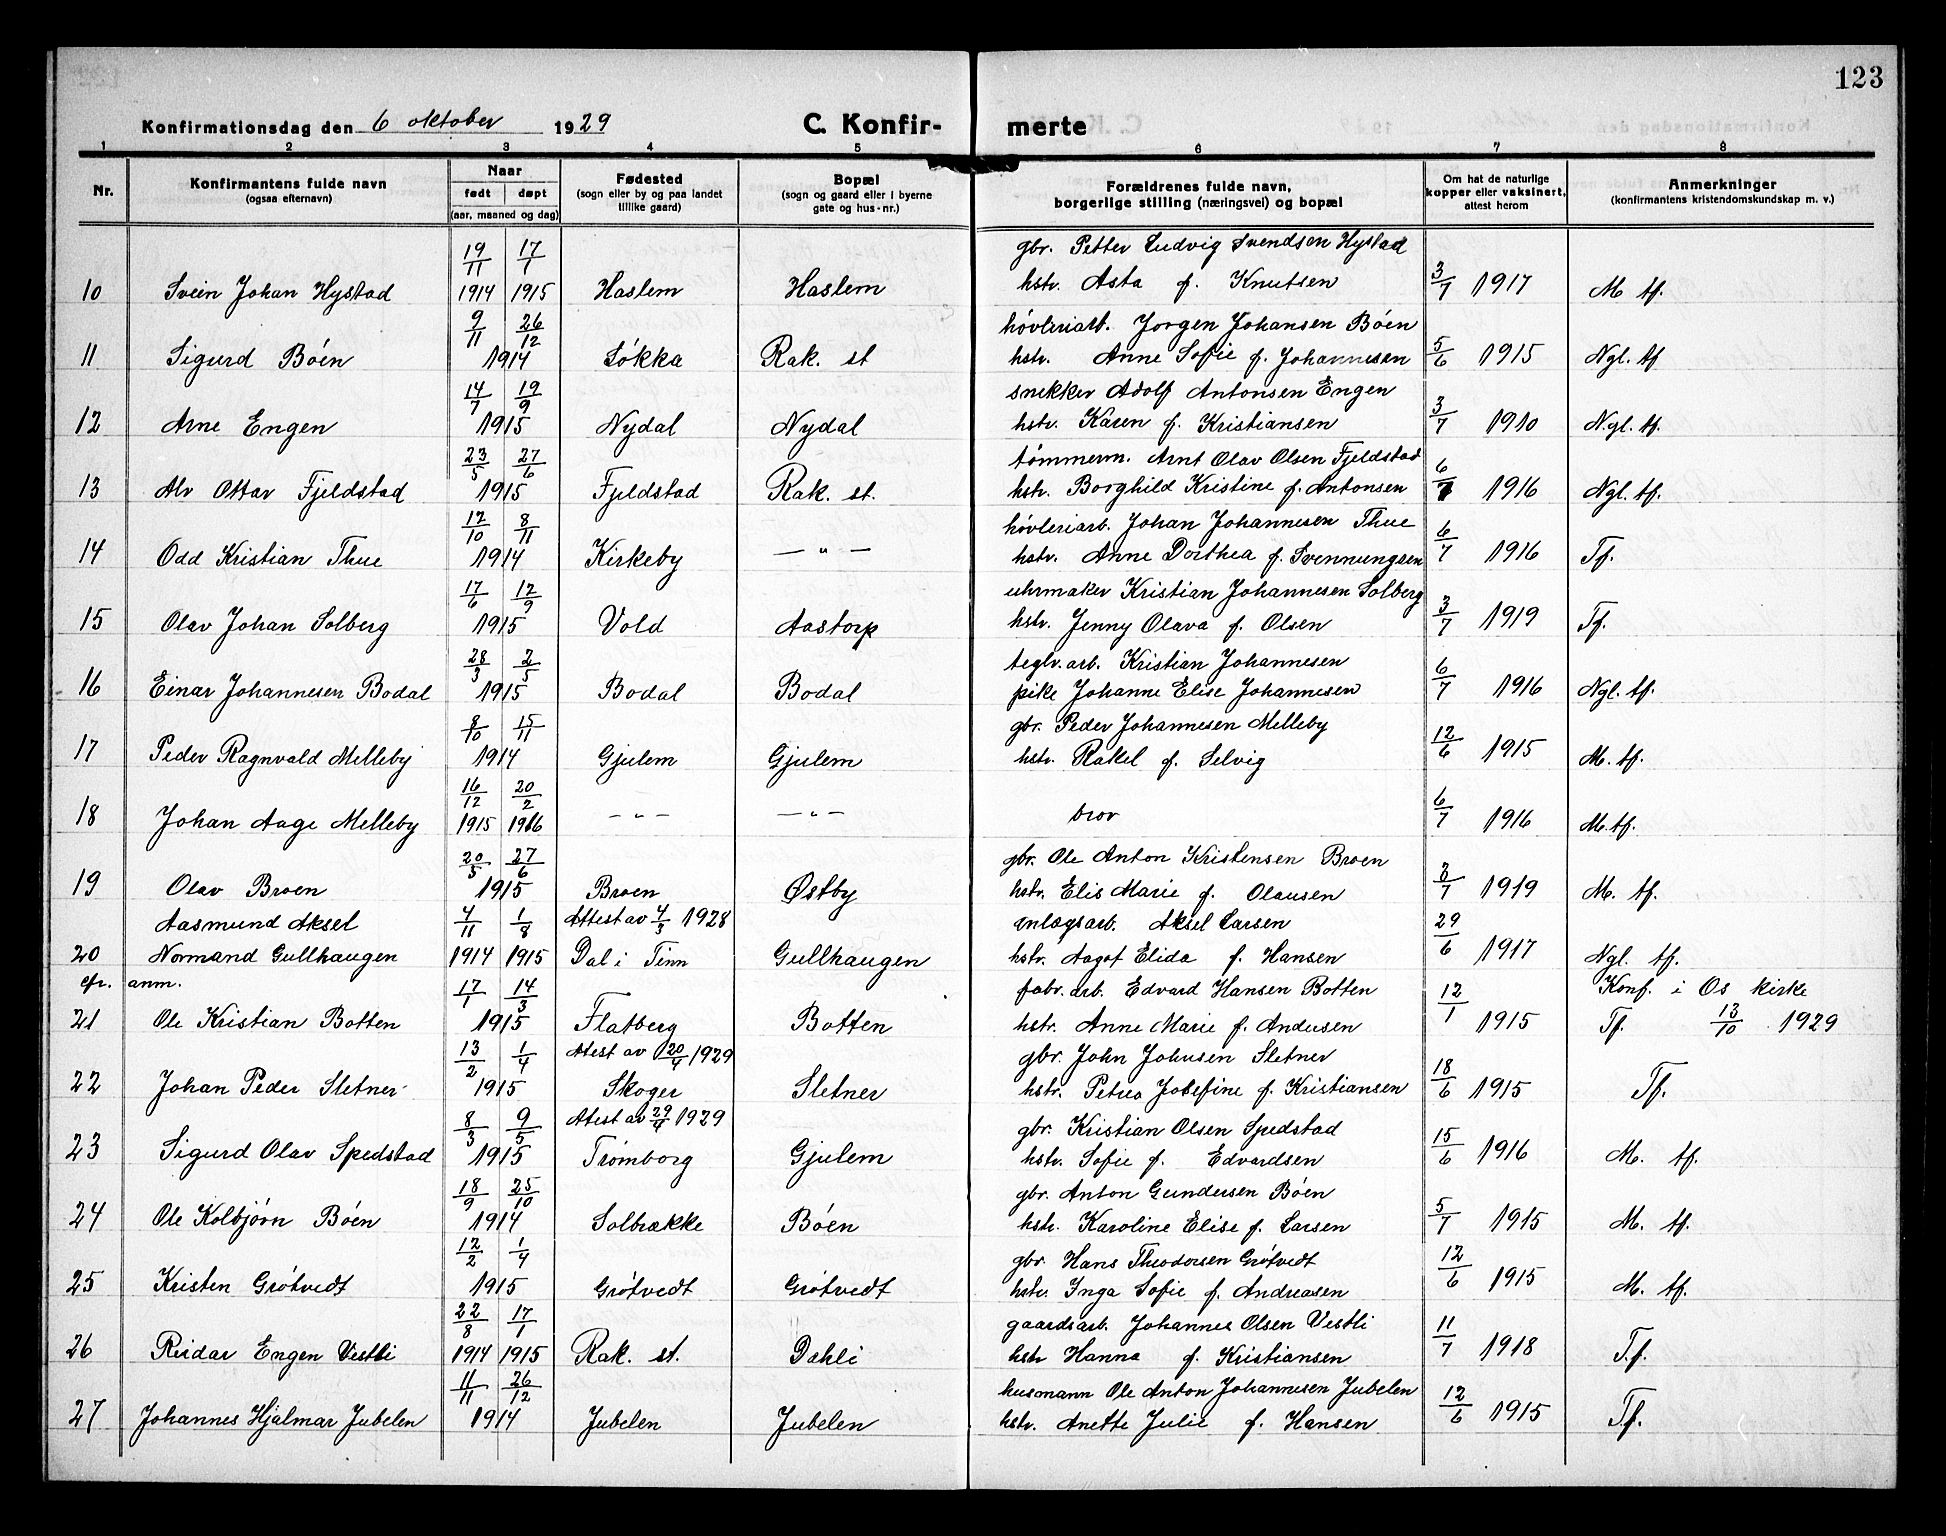 123
Konfirmationsdag den 6 oktober 1929 C. Konfir- merte
1 2 3 4 5 6 7 8
Nr. Konfirmantens fulde navn (ogsaa efternavn) Naar født døpt (aar, maaned og dag) Fødested (sogn eller by og paa landet tillike gaard) Bopæl (sogn og gaard eller i byerne gate og hus-nr.) Forældrenes fulde navn, borgerlige stilling (næringsvei) og bopæl Om hat de naturlige kopper eller vaksinert, attest herom Anmerkninger (konfirmantens kristendomskundskap m. v.)
19/11 17/1 gbr. Petter Ludvig Svendsen Hystad
10 Svein Johan Hystad 1914 1915 Haslem Haslem hstr. Asta f. Knutsen 3/7 1917 M tf.
9/11 26/12 hövleriarb. Jorgen Johansen Böen
11 Sigurd Böen 1914 Lökka Rak. st hstr. Anne Sofie f. Johannesen 5/6 1915 Ngl. tf
14/7 19/9 snekker Adolf Antonsen Engen
12 Arne Engen 1915 Nydal Nydal hstr. Karen f. Kristiansen 3/7 1910 Ngl. tf.
23/5 27/6 tömmerm. Arnt Olav Olsen Fjeldstad
13 Alv Ottar Fjeldstad 1915 Fjeldstad Rak. st. hstr. Borghild Kristine f. Antonsen 6/7 1916 Ngl. tf.
12/10 8/11 hövleriarb. Johan Johannesen Thue
14 Odd Kristian Thue 1914 Kirkeby — " — hstr. Anne Dorthea f. Svennungsen 6/7 1916 Tf.
17/6 12/9 uhrmaker Kristian Johannesen Solberg
15 Olav Johan Solberg 1915 Vold Aastorp hstr. Jenny Olava f. Olsen 3/7 1919 Tf.
28/3 2/5 teglv.arb. Kristian Johannesen
16 Einar Johannesen Bodal 1915 Bodal Bodal pike Johanne Elise Johannesen 6/7 1916 Ngl. tf.
8/10 15/11 gbr. Peder Johannesen Melleby
17 Peder Ragnvald Melleby 1914 Gjulem Gjulem hstr. Rakel f. Selvig 12/6 1915 M. tf.
16/12 20/2
18 Johan Aage Melleby 1915 1916 — " — — " — bror 6/7 1916 M. tf.
20/5 27/6 gbr. Ole Anton Kristensen Broen
19 Olav Broen 1915 Broen Østby hstr. Elis Marie f. Olausen 3/7 1919 M. tf.
Aasmund Aksel 4/11 1/8 Attest av 4/3 1928 anlægsarb. Aksel Larsen 29/6
20 Normand Gullhaugen 1914 1915 Dal i Tinn Gullhaugen hstr. Aagot Elida f. Hansen 1917 Ngl. tf.
cfr. anm. 17/1 14/3 fabr.arb. Edvard Hansen Botten 12/1 Konf. i Os kirke
21 Ole Kristian Botten 1915 Flatberg Botten hstr. Anne Marie f. Andersen 1915 Tf. 13/10 1929
13/2 1/4 Atest av 20/4 1929 gbr. John Johnsen Sletner
22 Johan Peder Sletner 1915 Skoger Sletner hstr. Petrea Josefine f. Kristiansen 18/6 1915 Tf.
8/3 9/5 Atest av 29/4 1929 gbr. Kristian Olsen Spedstad
23 Sigurd Olav Spedstad 1915 Trömborg Gjulem hstr. Sofie f. Edvardsen 15/6 1916 M. tf.
18/9 25/10 gbr. Anton Gundersen Böen
24 Ole Kolbjörn Böen 1914 Solbrække Böen hstr. Karoline Elise f. Larsen 5/7 1915 M. tf.
12/2 1/4 gbr Hans Theodorsen Grötvedt
25 Kristen Grötvedt 1915 Grötvedt Grötvedt hstr. Inga Sofie f. Andreasen 12/6 1915 M. tf.
22/8 17/1 gaardsarb. Johannes Olsen Vestli
26 Reidar Engen Vestli 1914 1915 Rak. st. Dahli hstr Hanna f. Kristiansen 11/7 1918 T.f.
11/11 26/12 husmann Ole Anton Johannesen Jubelen
27 Johannes Hjalmar Jubelen 1914 Jubelen Jubelen hstr. Anette Julie f. Hansen 12/6 1915 T.f.